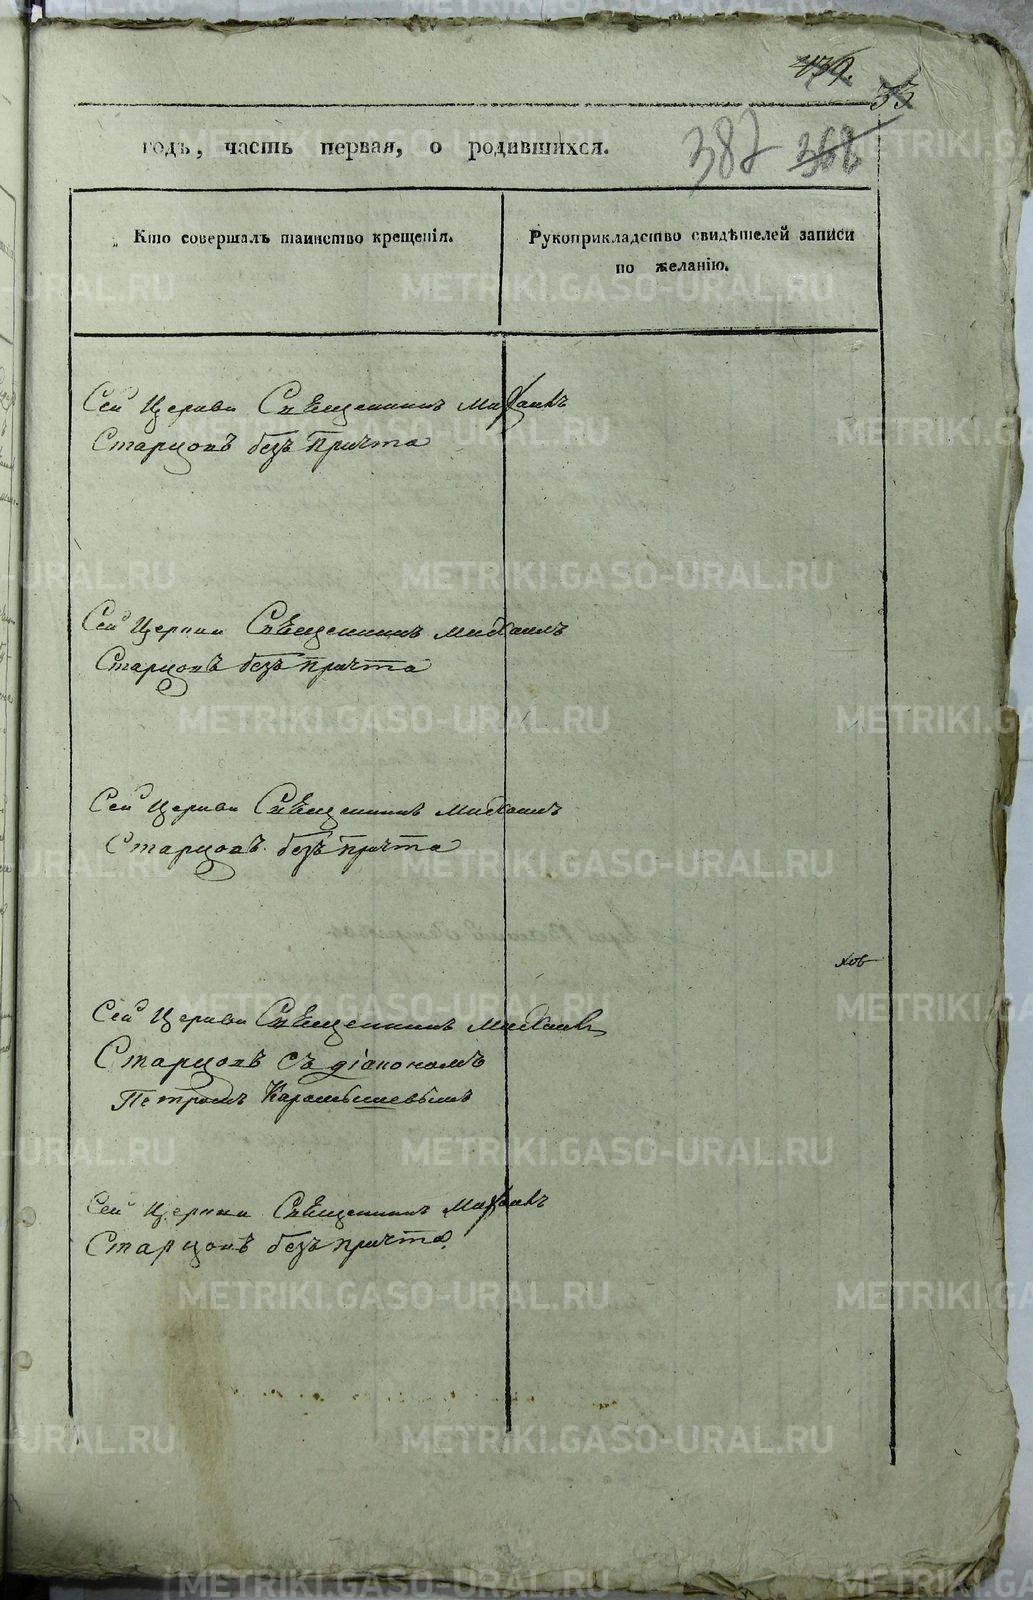 139.
33
382 368
годъ, часть первая, о родившихся.
Кто совершалъ таинство крещенія.
Рукоприкладство свидѣтелей записи
по желанію.
Сей Церкви Священникъ Михаилъ
Старцовъ безъ причта
Сей Церкви Священникъ Михаилъ
Старцовъ безъ причта
Сей Церкви Священникъ Михаилъ
Старцовъ безъ причта
хов
Сей Церкви Священникъ Михаилъ
Старцовъ съ діакономъ
Петромъ Карамышевымъ
Сей Церкви Священникъ Михаилъ
Старцовъ безъ причта.
METRIKI.GASO-URAL.RU